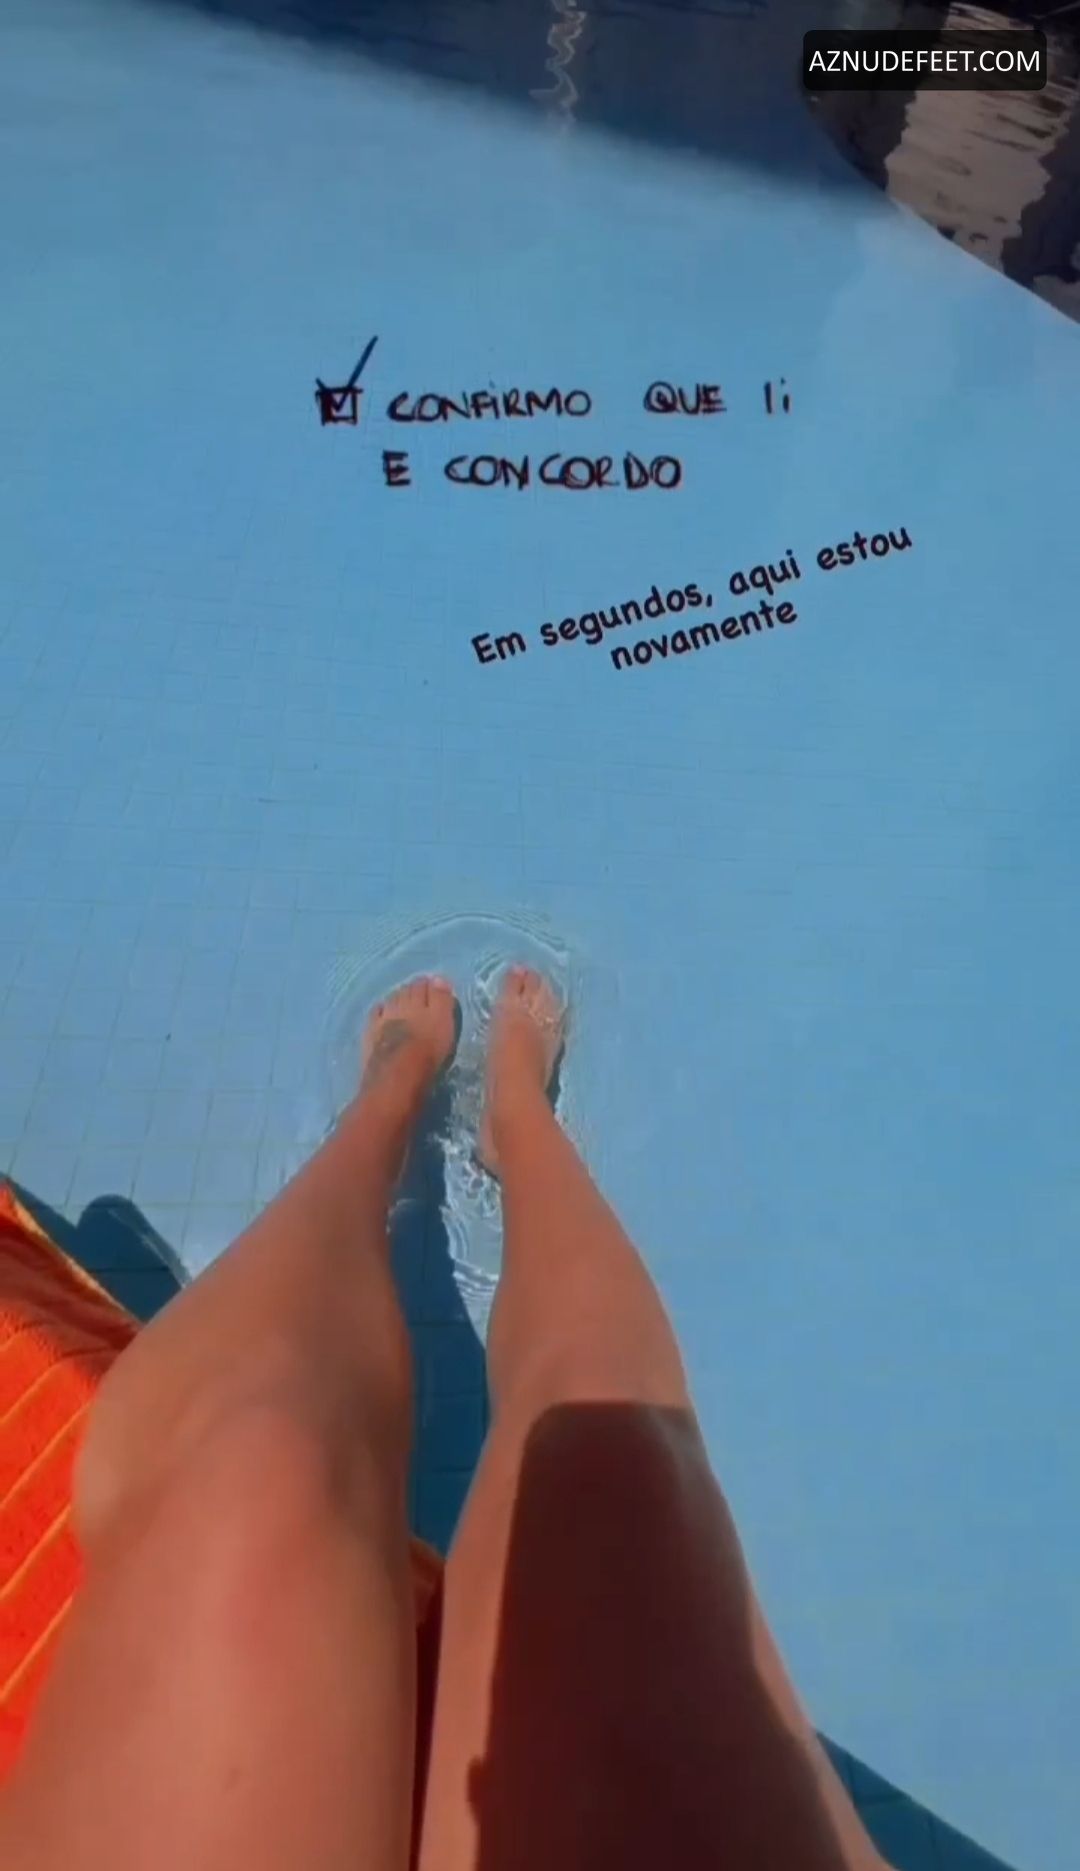 AZNUDEFEET.COM
CONFIRMO QUE li
E CONCORDO
Em segundos, aqui estou
novamente